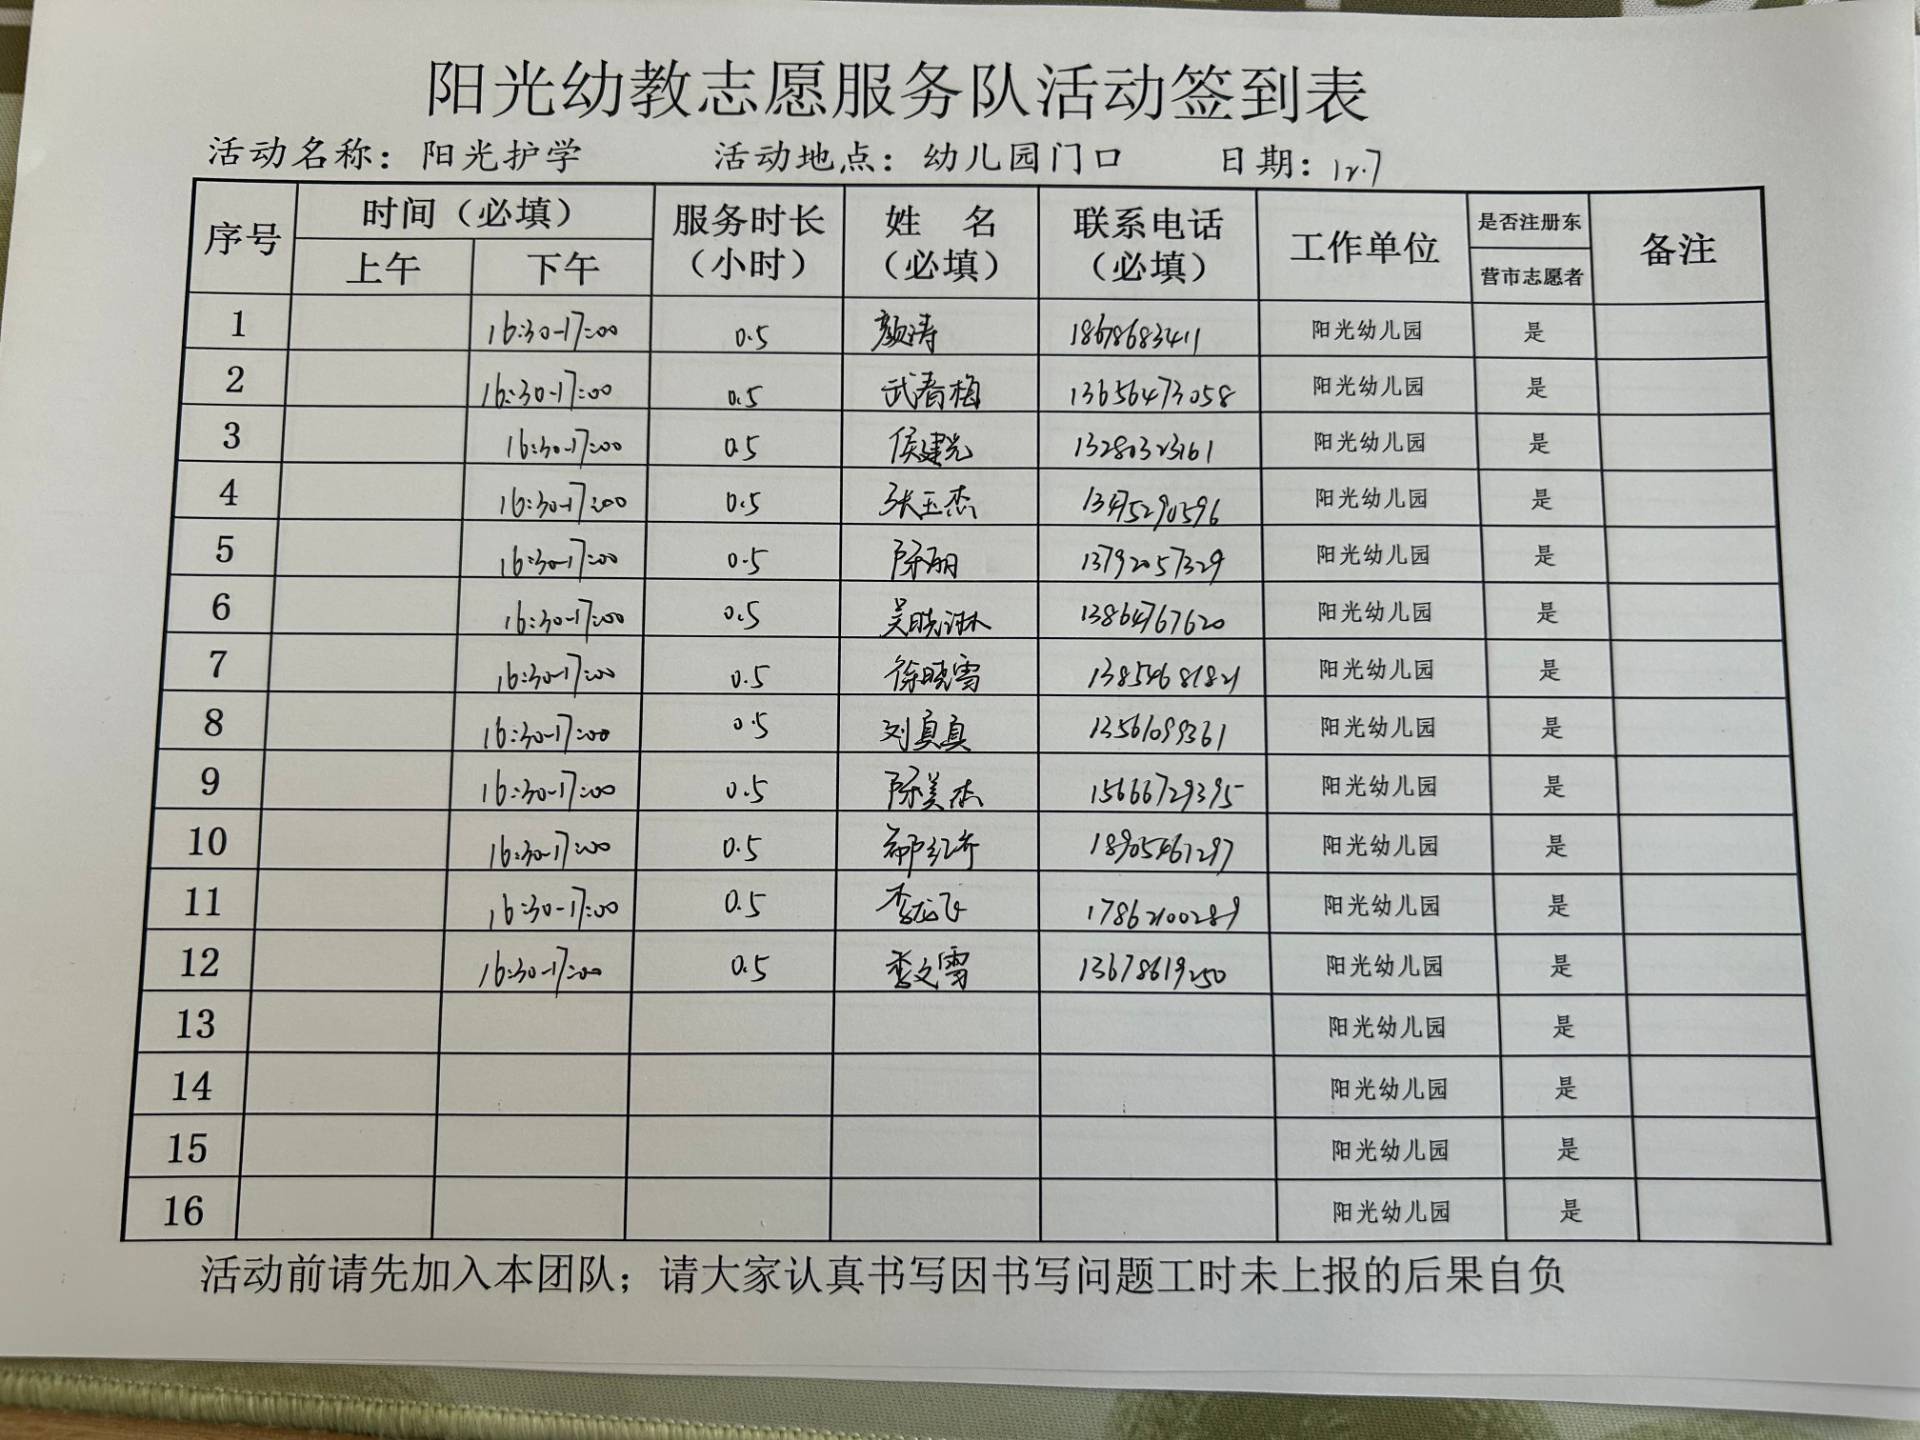 阳光幼教志愿服务队活动签到表
活动名称：阳光护学 活动地点：幼儿园门口 日期：12.7
序号 时间（必填） 服务时长（小时） 姓 名（必填） 联系电话（必填） 工作单位 是否注册东营市志愿者 备注
上午 下午
1 16:30-17:00 0.5 颜涛 18678683411 阳光幼儿园 是
2 16:30-17:00 0.5 武春梅 13656473058 阳光幼儿园 是
3 16:30-17:00 0.5 侯建光 13280323161 阳光幼儿园 是
4 16:30-17:00 0.5 张玉杰 13475290596 阳光幼儿园 是
5 16:30-17:00 0.5 陈丽 13792057329 阳光幼儿园 是
6 16:30-17:00 0.5 吴晓琳 13864767620 阳光幼儿园 是
7 16:30-17:00 0.5 徐晓雪 13854681821 阳光幼儿园 是
8 16:30-17:00 0.5 刘真真 13561099361 阳光幼儿园 是
9 16:30-17:00 0.5 陈美杰 15666729395 阳光幼儿园 是
10 16:30-17:00 0.5 18905461297 阳光幼儿园 是
11 16:30-17:00 0.5 李龙飞 17862100289 阳光幼儿园 是
12 16:30-17:00 0.5 李文雪 13678619250 阳光幼儿园 是
13 阳光幼儿园 是
14 阳光幼儿园 是
15 阳光幼儿园 是
16 阳光幼儿园 是
活动前请先加入本团队；请大家认真书写因书写问题工时未上报的后果自负